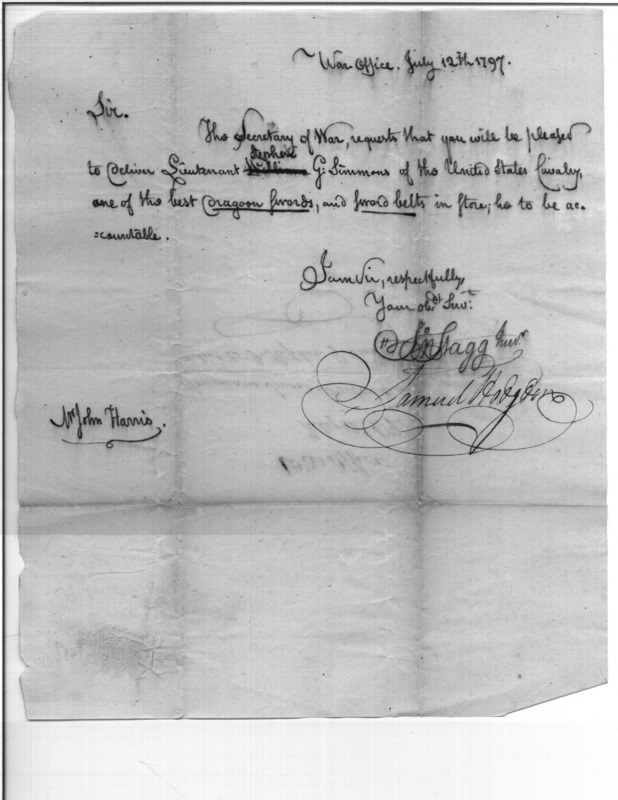 War Office, July 12th 1797.
Sir.
The Secretary of War, requests that you will be pleased
Stephen
to deliver Lieutenant William G: Simmons of the United States Cavalry,
one of the best dragoon swords, and sword belts in store; he to be ac-
=countable.
I am Sir, respectfully
Your obdt Servt
Jn Stagg Junr
Samuel Hodgdon
Mr John Harris.